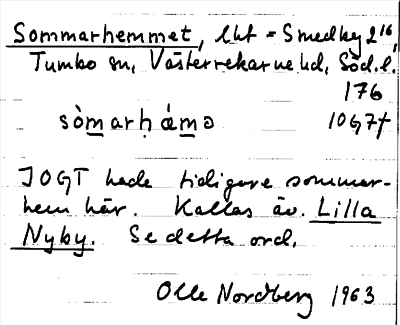 Sommarhemmet, lht = Smedby 2¹⁶,
Tumbo sn, Västerrekarne hd, Söd. l.
176
sòmarḥámə 10G7f
IOGT hade tidigare sommar-
hem här. Kallas äv. Lilla
Nyby. Se detta ord.
Olle Nordberg 1963